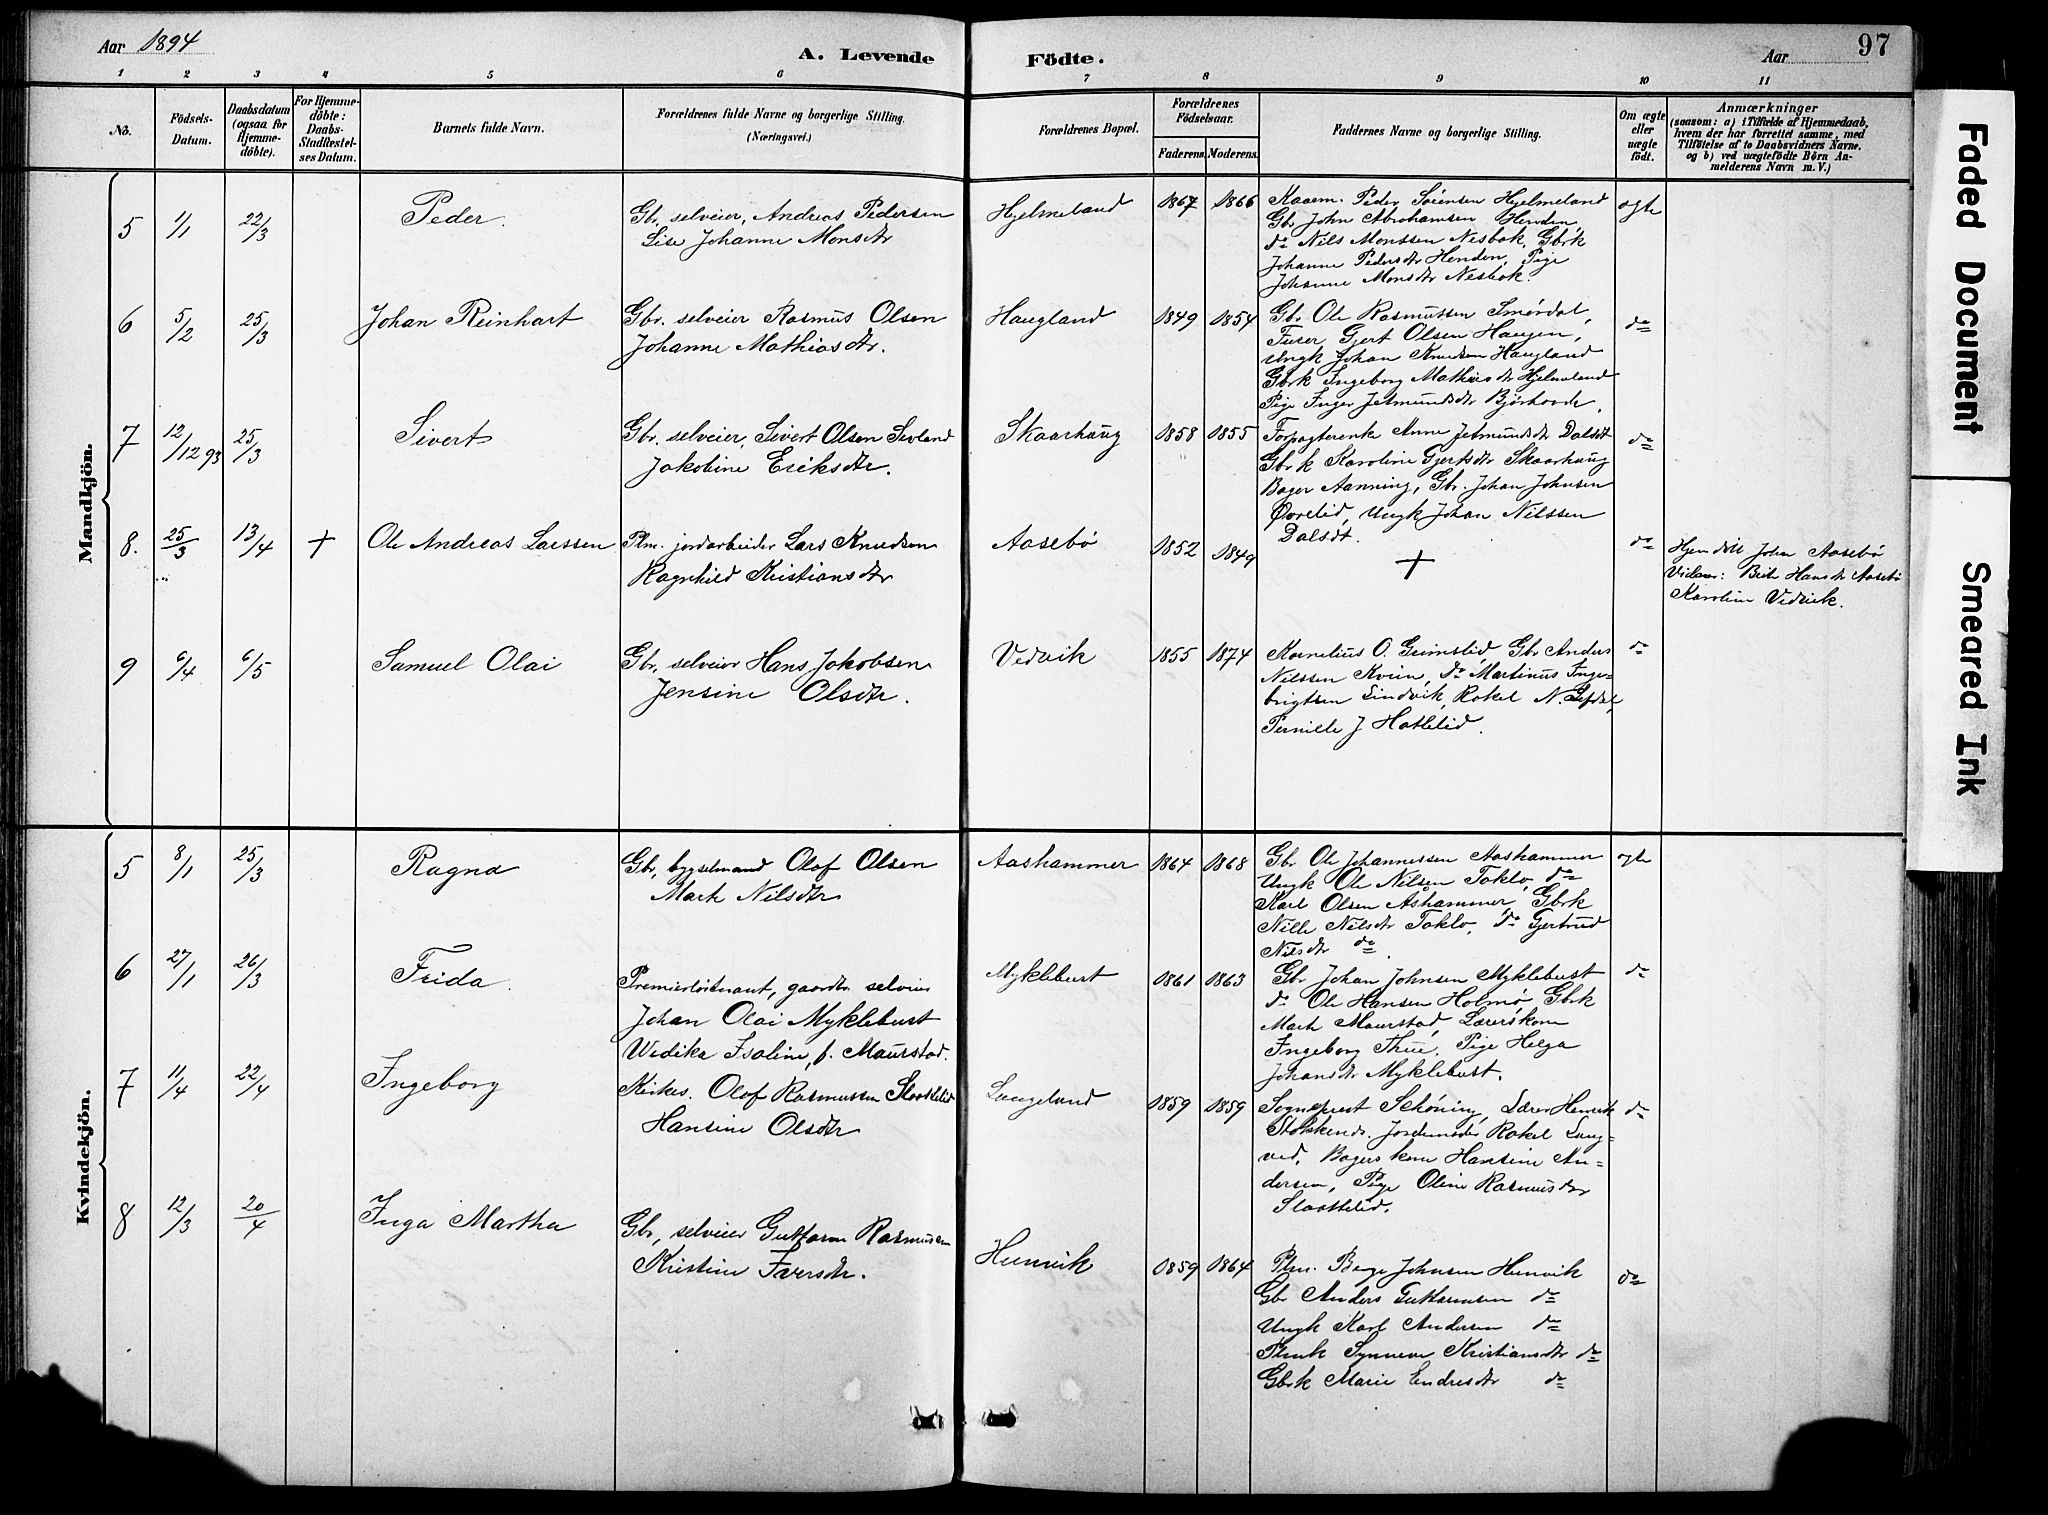 Aar 1894
A. Levende Födte.
Aar
97
1 2 3 4 5 6 7 8 9 10 11
No.
Födsels-
Datum.
Daabsdatum
(ogsaa for
Hjemme-
döbte).
For Hjemme-
döbte:
Daabs-
Stadfæstel-
ses Datum.
Barnets fulde Navn.
Forældrenes fulde Navne og borgerlige Stilling.
(Næringsvei.)
Forældrenes Bopæl.
Forældrenes
Födselsaar.
Faderens. Moderens.
Faddernes Navne og borgerlige Stilling.
Om ægte
eller
uægte
født.
Anmærkninger
(saasom: a) i Tilfælde af Hjemmedaab,
hvem der har forrettet samme, med
Tilföielse af to Daabsvidners Navne.
og b) ved uægtefödte Börn An-
melderens Navn m. V.)
Mandkjön.
5 1/1 22/3 Peder. Gbr. selveier, Andreas Pedersen
Lise Johanne Monsdtr
Hjelmeland 1867 1866
Peder Sørensen Hjelmeland
Gbr John Abrahamsen Henden
do Nils Monssen Nesbak, Gbrk
Johanne Pedersdtr Henden, Pige
Johanne Monsdtr Nesbak.
egte
6 5/2 25/3 Johan Reinhart Gbr. selveier Rasmus Olsen
Johanne Mathiasdtr.
Haugland 1849 1854
Gbr. Ole Rasmussen Smørdal,
Gjert Olsen Haugen,
Ungk Johan Knudsen Haugland
Gbrk Ingeborg Mathiasdtr Hjelmeland
Pige Inger Jetmundsdtr
do
7 12/12 93 25/3 Sivert Gbr. selveier, Sivert Olsen Sevland
Jakobine Eriksdtr.
Skaarhaug 1858 1855
Anne Jetmundsdtr Dalsdt
Gbrk Karoline Gjertsdtr Skaarhaug
Bager Aanning, Gbr. Johan Johnsen
Øvrelid, Ungk Johan Nilssen
Dalsdt.
do
8. 25/3 13/4 + Ole Andreas Larssen Plm. jordarbeider Lars Knudsen
Ragnhild Kristiansdtr
Aasebø 1852 1849 + do
John Aasebø
Hansdtr Aasebø
Karoline Vedvik.
9 6/4 6/5 Samuel Olai Gbr. selveier Hans Jakobsen
Jensine Olsdtr.
Vedvik 1855 1874
Kornelius O. Grimslid, Gbr Anders
Nilssen Kvien, do Martinus Inge-
brigtsen Lindvik, Rakel N.
Pernille J Hatlelid.
do
Kvindekjön.
5 8/1 25/3 Ragna Gbr. bygselmand Olof Olsen
Marte Nilsdtr
Aashammer 1864 1868
Gbr Ole Johannessen Aashammer
Ungk Ole Nilsen Taklo, do
Karl Olsen Åshammer, Gbrk
Nille Nilsdtr Taklo, do Gjertrud
Nilsdtr do.
egte
6 27/1 26/3 Frida. Premierløitnant, gaardbr. selveier
Johan Olai Myklebust
Wedika Isaline, f. Maurstad.
Myklebust 1861 1863
Gbr Johan Johnsen Myklebust
do Ole Hansen Holmø, Gbrk
Marte Maurstad, Lærerskone
Ingeborg Thue, Pige Helga
Johansdtr Myklebust.
do
7 11/4 22/4 Ingeborg Kirkes. Olof Rasmussen Slaattelid
Hansine Olsdtr
Langeland 1859 1859
Sogneprest Schöning, Lærer Henrik
Jordemoder Rakel Lang-
ved, Bagerskone Hansine An-
dersen, Pige Oline Rasmusdtr
Slaattelid.
do
8 12/3 20/4 Inga Martha Gbr, selveier Guttorm Rasmussen
Kristine Iversdtr.
Hunvik 1859 1864
Plm. Berge Johnsen Hunvik
Gbr Anders Guttormsen do
Ungk Karl Andersen do
Plmk Synneve Kristiansdtr do
Gbrk Marie Endresdtr do
do
Faded Document
Smeared Ink